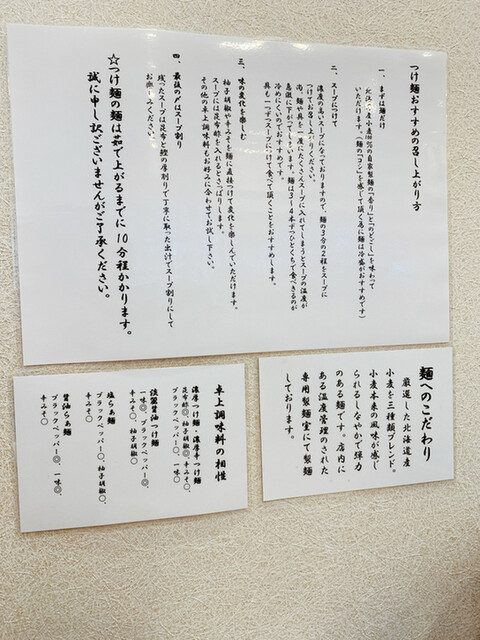 つけ麺おすすめの召し上がり方
一、まずは麺だけ
北海道産小麦100%の自家製麺の「香り」と「のどごし」を味わって
いただけます。「麺の「コシ」を感じて頂く為に麺は冷盛がおすすめです)
二、スープにつけて
濃度の高いスープになっておりますので、麺の3分の2程をスープに
つけてお召し上がりください。
尚、麺や具を一度にたくさんスープに入れてしまうとスープの温度が
急激に下がってしまいます。麺は3~4本ずつひとくちで食べきるのが
冷めにくいのでおすすめです。
具も一つずつスープにつけて食べて頂くことをおすすめします。
三、味の変化を楽しむ
柚子胡椒や辛みそを麺に直接つけて変化を楽しんでいただけます。
スープには昆布酢を入れるとさっぱりします。
その他の卓上調味料もお好みに合わせてお試し下さい。
四、最後の〆はスープ割り
残ったスープは昆布と鰹の厚削りで丁寧に取った出汁でスープ割りにして
お楽しみください。
☆つけ麺の麺は茹で上がるまでに10分程かかります。
誠に申し訳ございませんがご了承ください。
麺へのこだわり
厳選した北海道産
小麦を三種類ブレンド。
小麦本来の風味が感じ
られるしなやかで弾力
のある麺です。店内に
ある温度管理のされた
専用製麺室にて製麺
しております。
卓上調味料の相性
濃厚つけ麺・濃厚辛つけ麺
昆布酢◎、柚子胡椒◎、辛みそ○、
ブラックペッパー○、一味○
淡麗醤油つけ麺
一味◎、ブラックペッパー◎、
柚子胡椒○
塩らぁ麺
ブラックペッパー○、柚子胡椒○、
辛みそ○
醤油らぁ麺
ブラックペッパー◎、一味◎、
辛みそ○